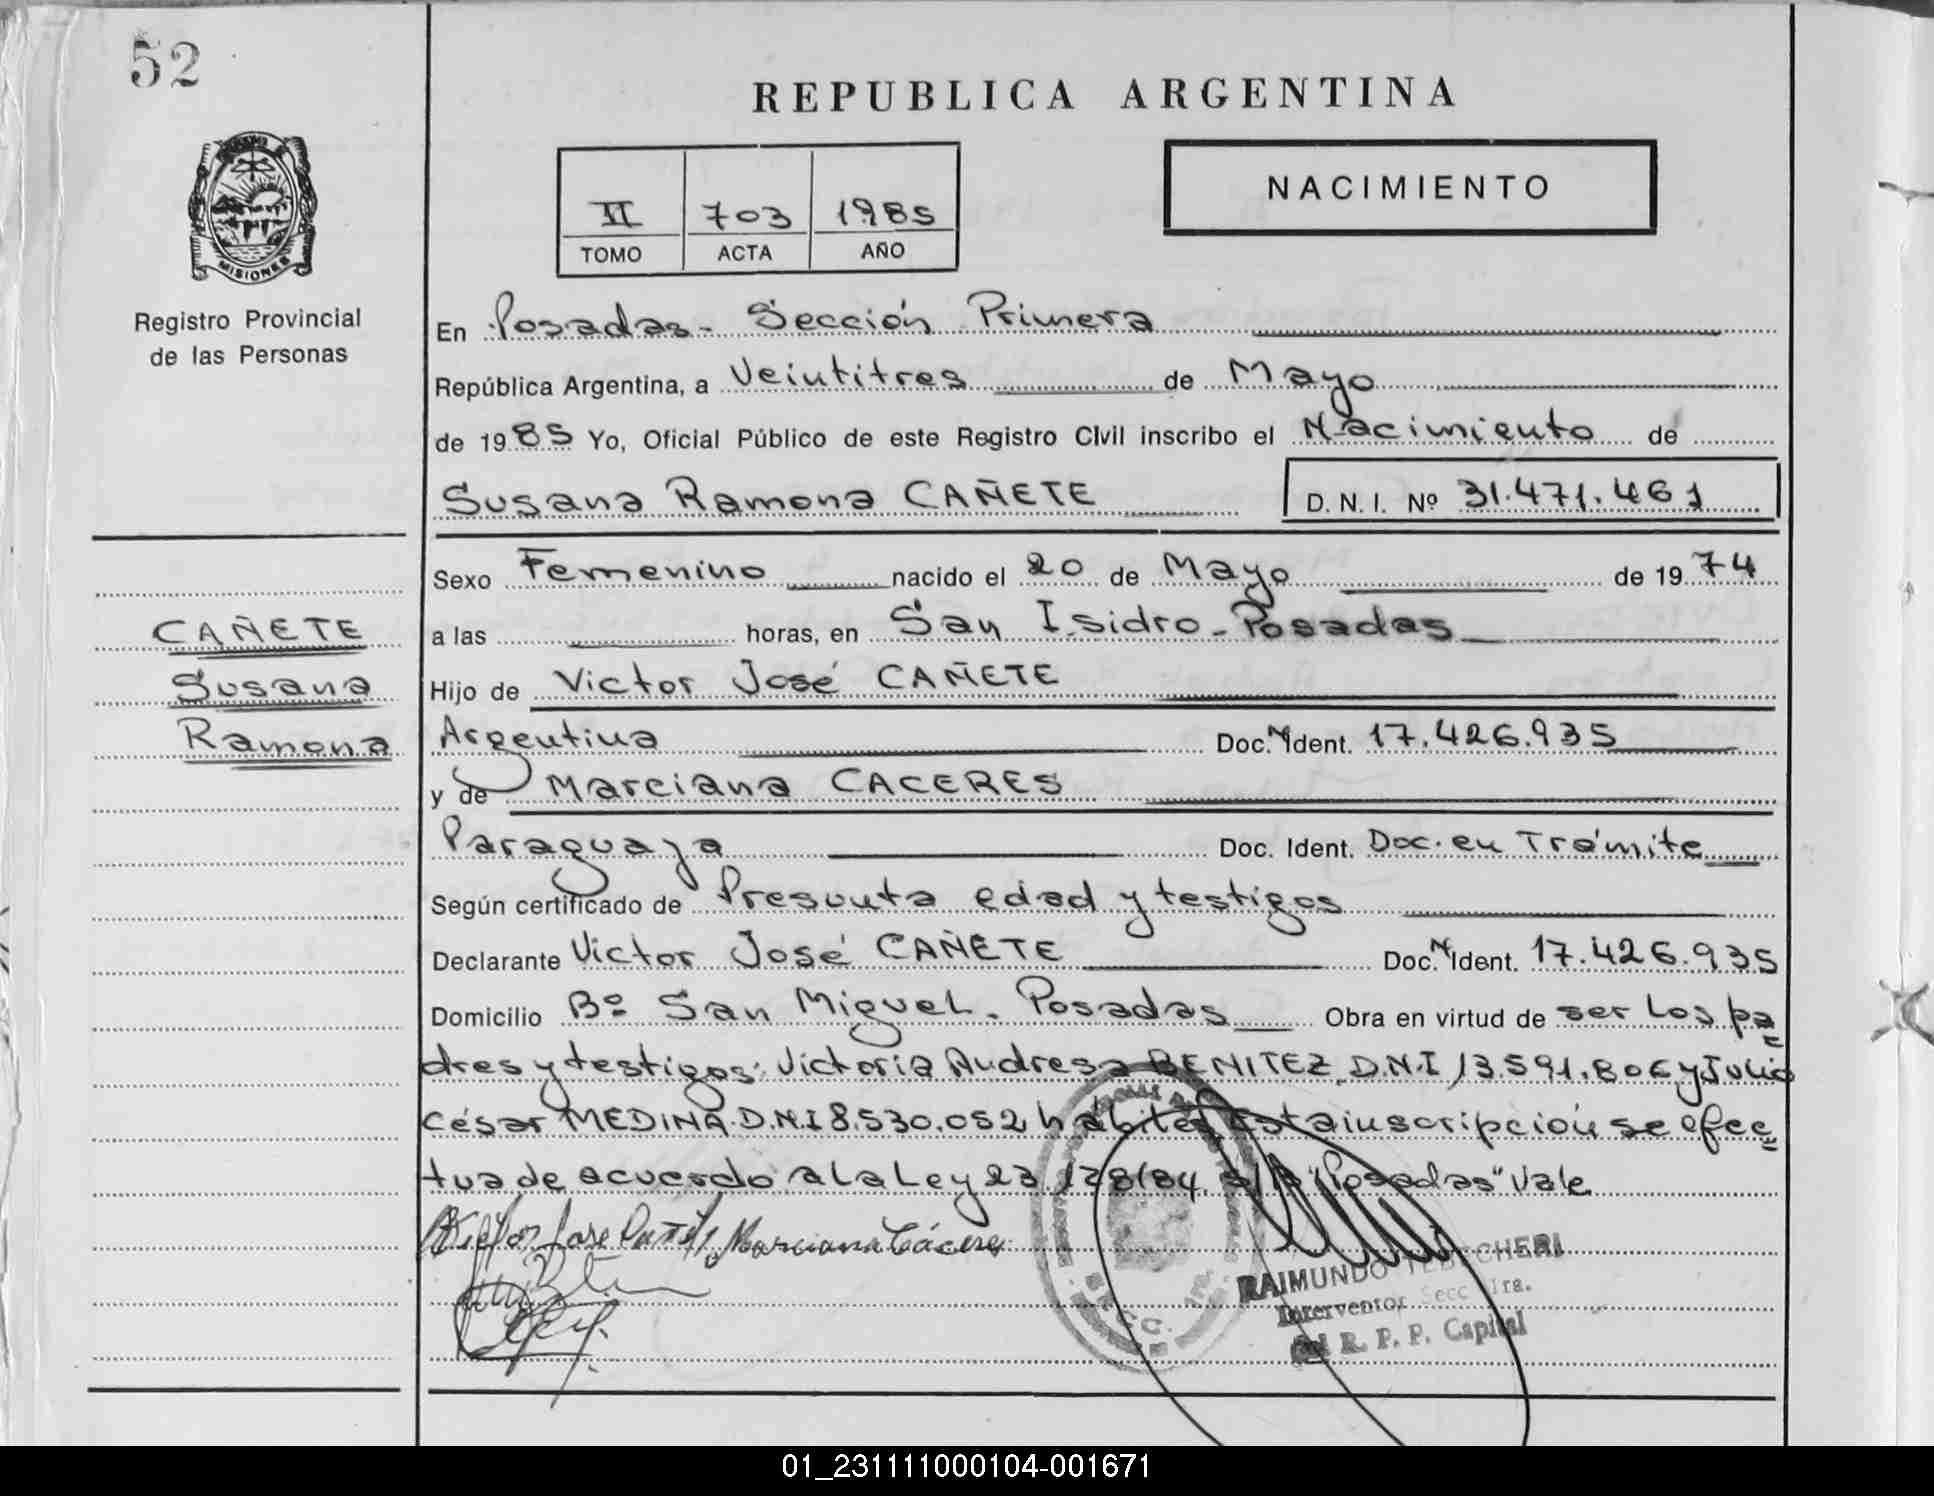 52
REPUBLICA ARGENTINA
NACIMIENTO
II 703 1985
TOMO ACTA AÑO
MISIONES
Registro Provincial
de las Personas
En Posadas - Sección Primera
República Argentina, a Veintitres de Mayo
de 1985 Yo, Oficial Público de este Registro Civil inscribo el Nacimiento de
Susana Ramona CAÑETE D.N.I. Nº 31.471.461
Sexo Femenino nacido el 20 de Mayo de 1974
a las horas, en San Isidro - Posadas
Hijo de Victor José CAÑETE
Argentina Doc. N Ident. 17.426.935
y de Marciana CACERES
Paraguaya Doc. Ident. Doc. en Trámite
Según certificado de Presunta edad y testigos
Declarante Victor José CAÑETE Doc. N Ident. 17.426.935
Domicilio Bº San Miguel - Posadas Obra en virtud de ser los pa
dres y testigos: Victoria Andresa BENITEZ D.N.I 13.591.806 y Julio
César MEDINA D.N.I 8.530.052 hábiles Esta inscripción se efec
tua de acuerdo a la Ley 23.128/84. "Posadas" Vale
CAÑETE
Susana
Ramona
Victor Jose Marciana Cáceres
RAIMUNDO
Interventor Secc 1ra.
del R. P. P. Capital
01_231111000104-001671